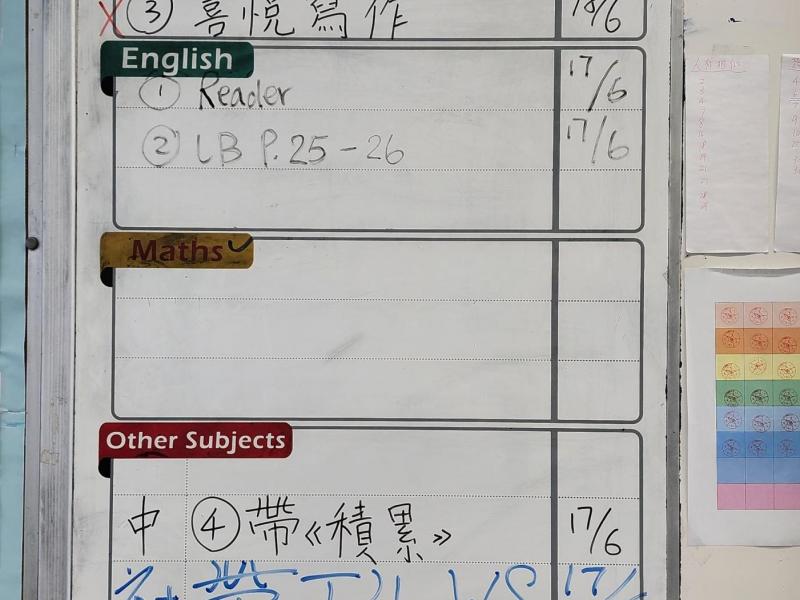 ③ 喜悅寫作 18/6
English
① Reader 17/6
② LB P.25-26 17/6
Maths ✓
Other Subjects
中 ④ 帶《積累》 17/6
17/6